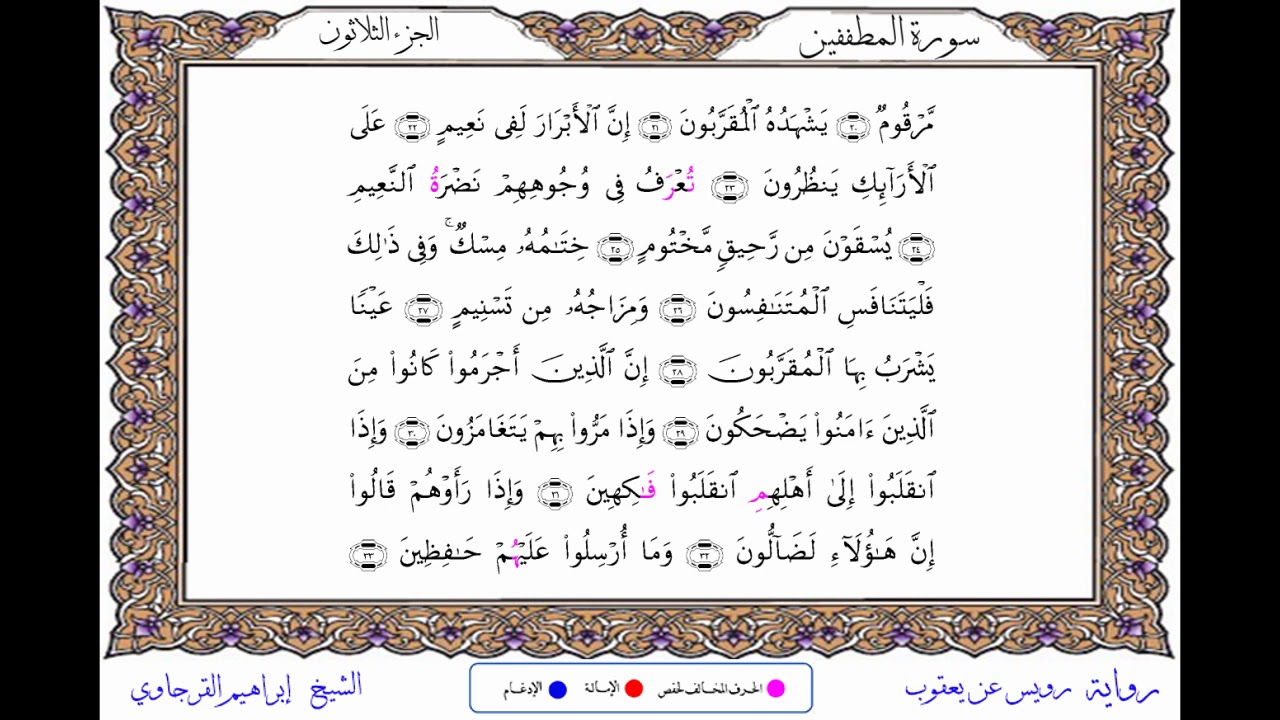 سورة المطففين
الجزء الثلاثون
مَّرْقُومٌ ٢٠ يَشْهَدُهُ ٱلْمُقَرَّبُونَ ٢١ إِنَّ ٱلْأَبْرَارَ لَفِى نَعِيمٍ ٢٢ عَلَى
ٱلْأَرَآئِكِ يَنظُرُونَ ٢٣ تُعْرَفُ فِى وُجُوهِهِمْ نَضْرَةُ ٱلنَّعِيمِ
٢٤ يُسْقَوْنَ مِن رَّحِيقٍ مَّخْتُومٍ ٢٥ خِتَٰمُهُۥ مِسْكٌ ۚ وَفِى ذَٰلِكَ
فَلْيَتَنَافَسِ ٱلْمُتَنَٰفِسُونَ ٢٦ وَمِزَاجُهُۥ مِن تَسْنِيمٍ ٢٧ عَيْنًا
يَشْرَبُ بِهَا ٱلْمُقَرَّبُونَ ٢٨ إِنَّ ٱلَّذِينَ أَجْرَمُوا۟ كَانُوا۟ مِنَ
ٱلَّذِينَ ءَامَنُوا۟ يَضْحَكُونَ ٢٩ وَإِذَا مَرُّوا۟ بِهِمْ يَتَغَامَزُونَ ٣٠ وَإِذَا
ٱنقَلَبُوا۟ إِلَىٰٓ أَهْلِهِمِ ٱنقَلَبُوا۟ فَٰكِهِينَ ٣١ وَإِذَا رَأَوْهُمْ قَالُوا۟
إِنَّ هَٰٓؤُلَآءِ لَضَآلُّونَ ٣٢ وَمَآ أُرْسِلُوا۟ عَلَيْهُمْ حَٰفِظِينَ ٣٣
رواية رويس عن يعقوب
الحرف المخالف لحفص
الإمالة
الإدغام
الشيخ إبراهيم القرجاوي